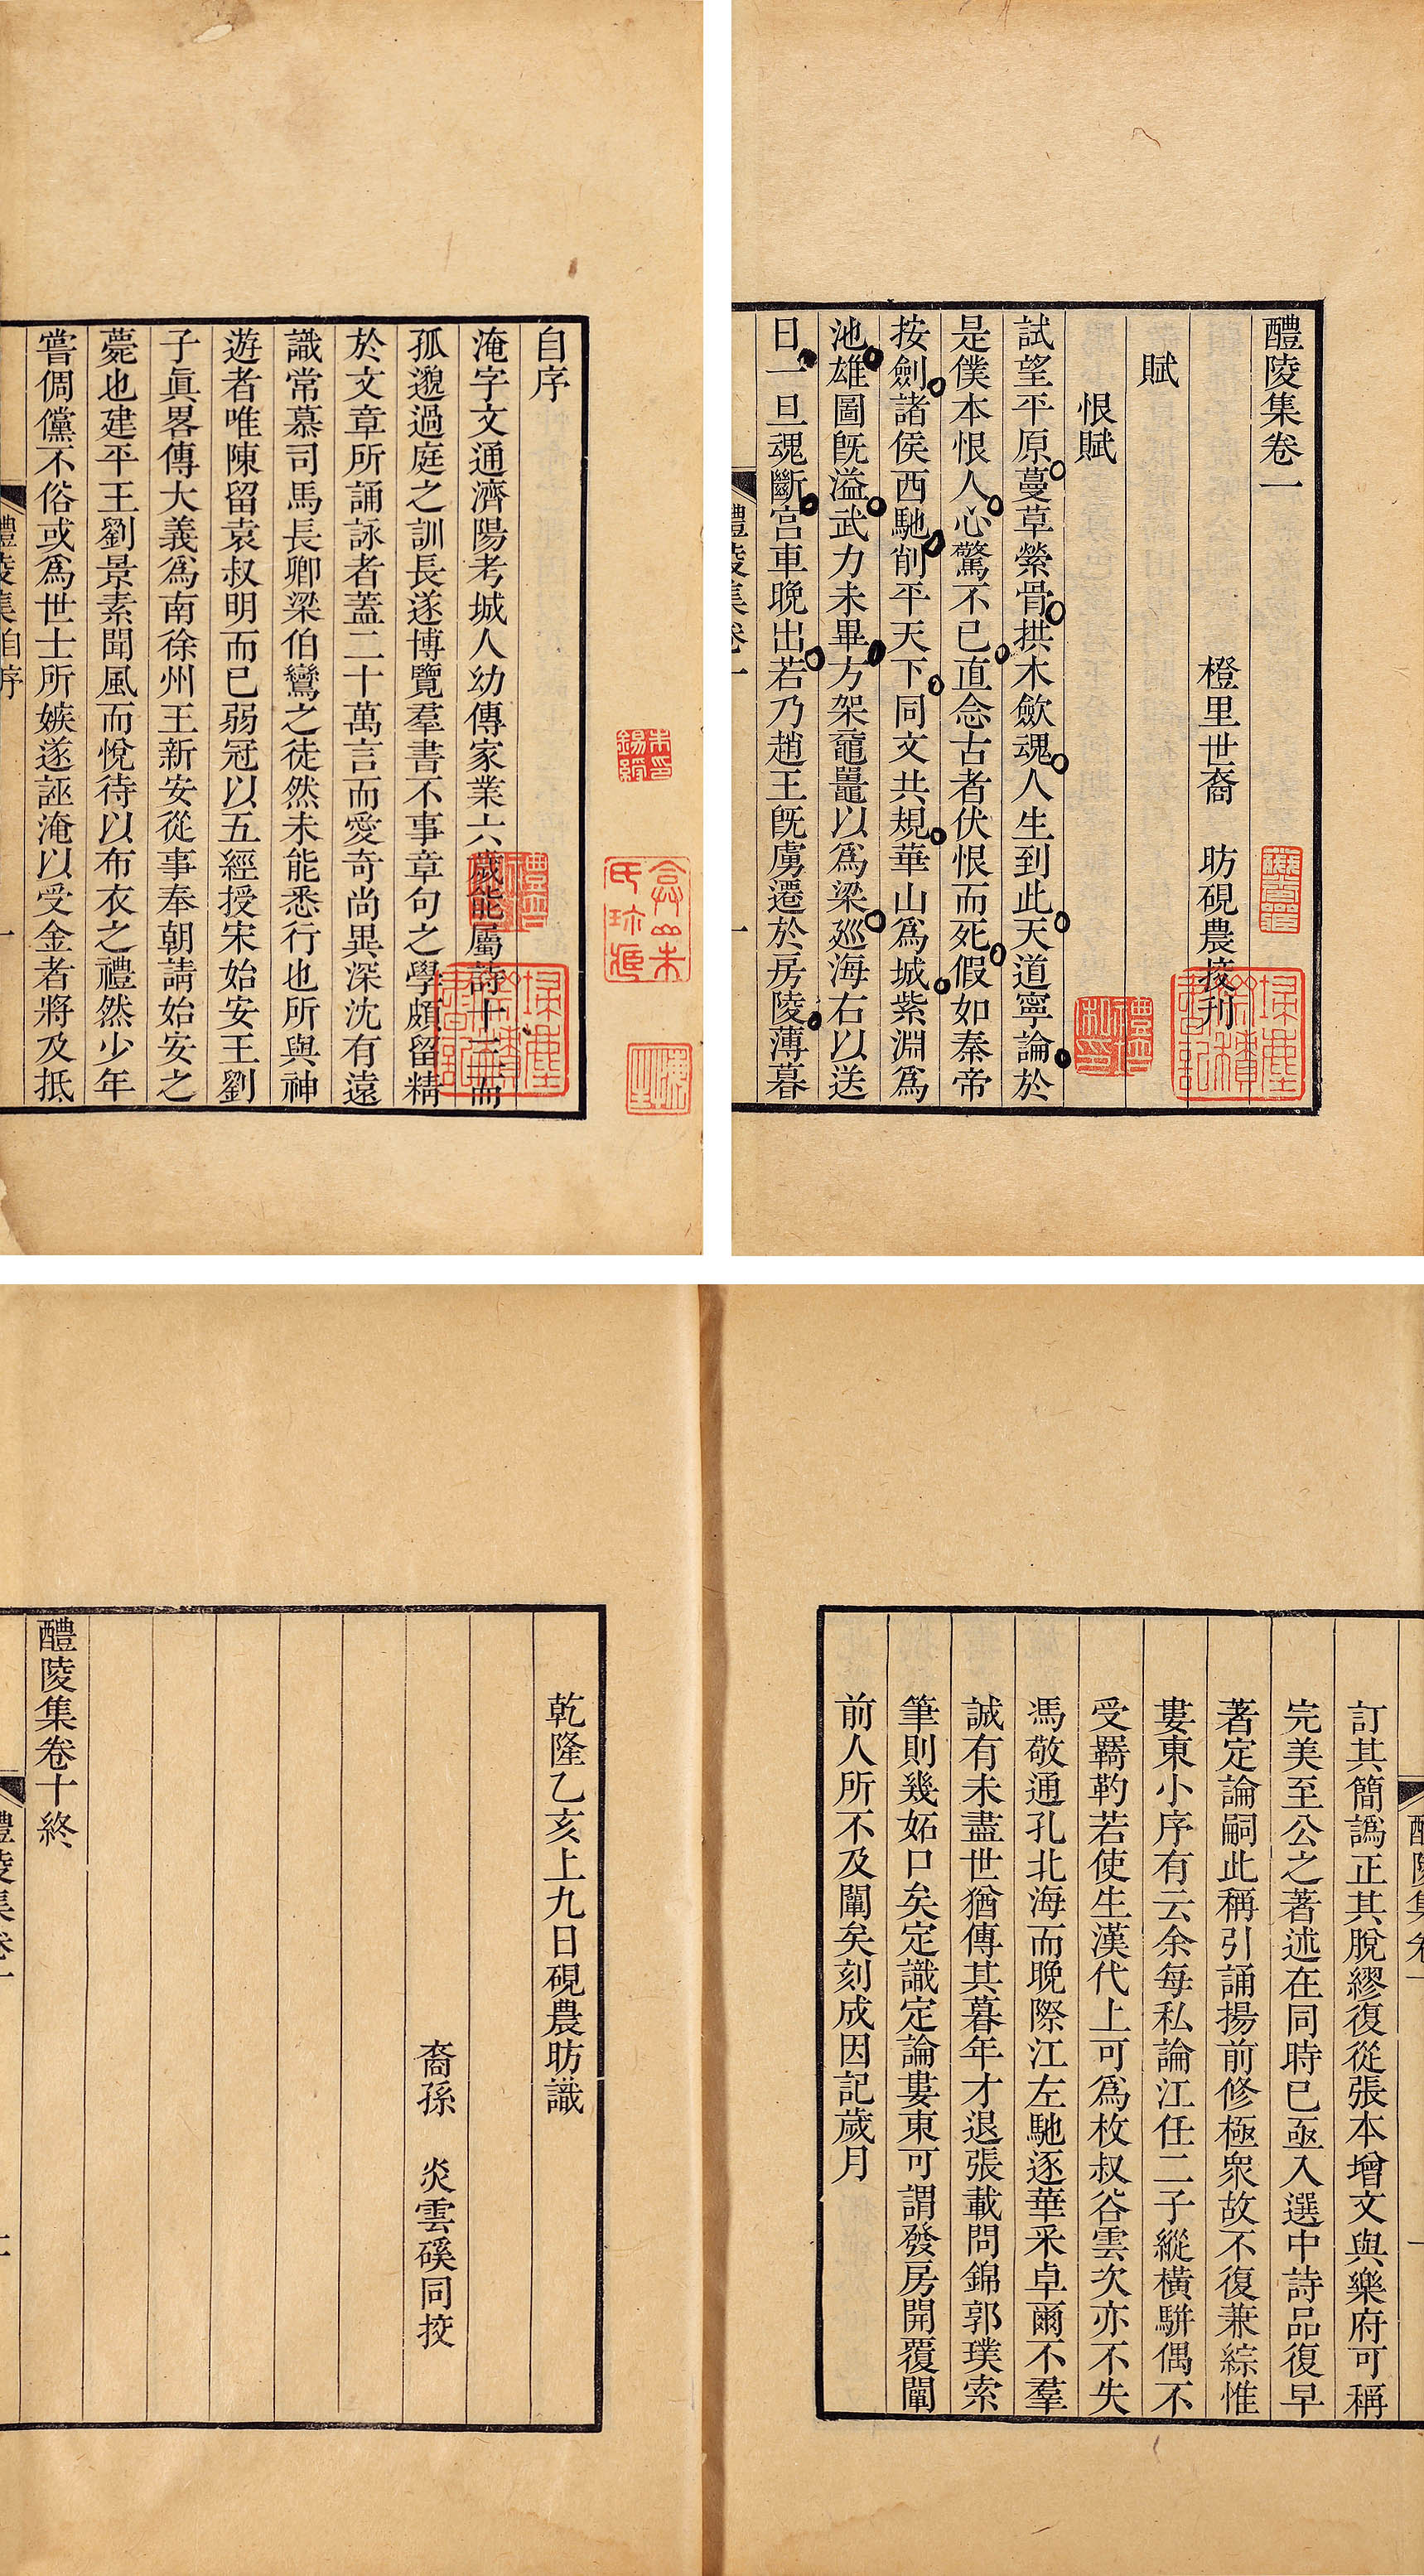 醴陵集卷一
橙里世裔　昉硯農挍刊
賦
恨賦
試望平原蔓草縈骨拱木歛魂人生到此天道寧論於
是僕本恨人心驚不已直念古者伏恨而死假如秦帝
按劍諸侯西馳削平天下同文共規華山爲城紫淵爲
池雄圖旣溢武力未畢方架黿鼉以爲梁廵海右以送
日一旦魂斷宫車晚出若乃趙王旣虜遷於房陵薄暮
自序
淹字文通濟陽考城人幼傳家業六歲能屬詩十三而
孤邈過庭之訓長遂博覽羣書不事章句之學頗留精
於文章所誦詠者蓋二十萬言而愛奇尚異深沈有遠
識常慕司馬長卿梁伯鸞之徒然未能悉行也所與神
遊者唯陳留袁叔明而已弱冠以五經授宋始安王劉
子眞畧傳大義爲南徐州王新安從事奉朝請始安之
薨也建平王劉景素聞風而悅待以布衣之禮然少年
嘗倜儻不俗或爲世士所嫉遂誣淹以受金者將及抵
醴陵集自序
訂其簡譌正其脫繆復從張本增文與樂府可稱
完美至公之著述在同時已亟入選中詩品復早
著定論嗣此稱引誦揚前修極衆故不復兼綜惟
婁東小序有云余每私論江任二子縱橫駢偶不
受羈靮若使生漢代上可爲枚叔谷雲次亦不失
馮敬通孔北海而晚際江左馳逐華釆卓爾不羣
誠有未盡世猶傳其暮年才退張載問錦郭璞索
筆則幾妬口矣定識定論婁東可謂發房開覆闡
前人所不及闡矣刻成因記歲月
乾隆乙亥上九日硯農昉識
裔孫　炎雲磎同挍
醴陵集卷十終